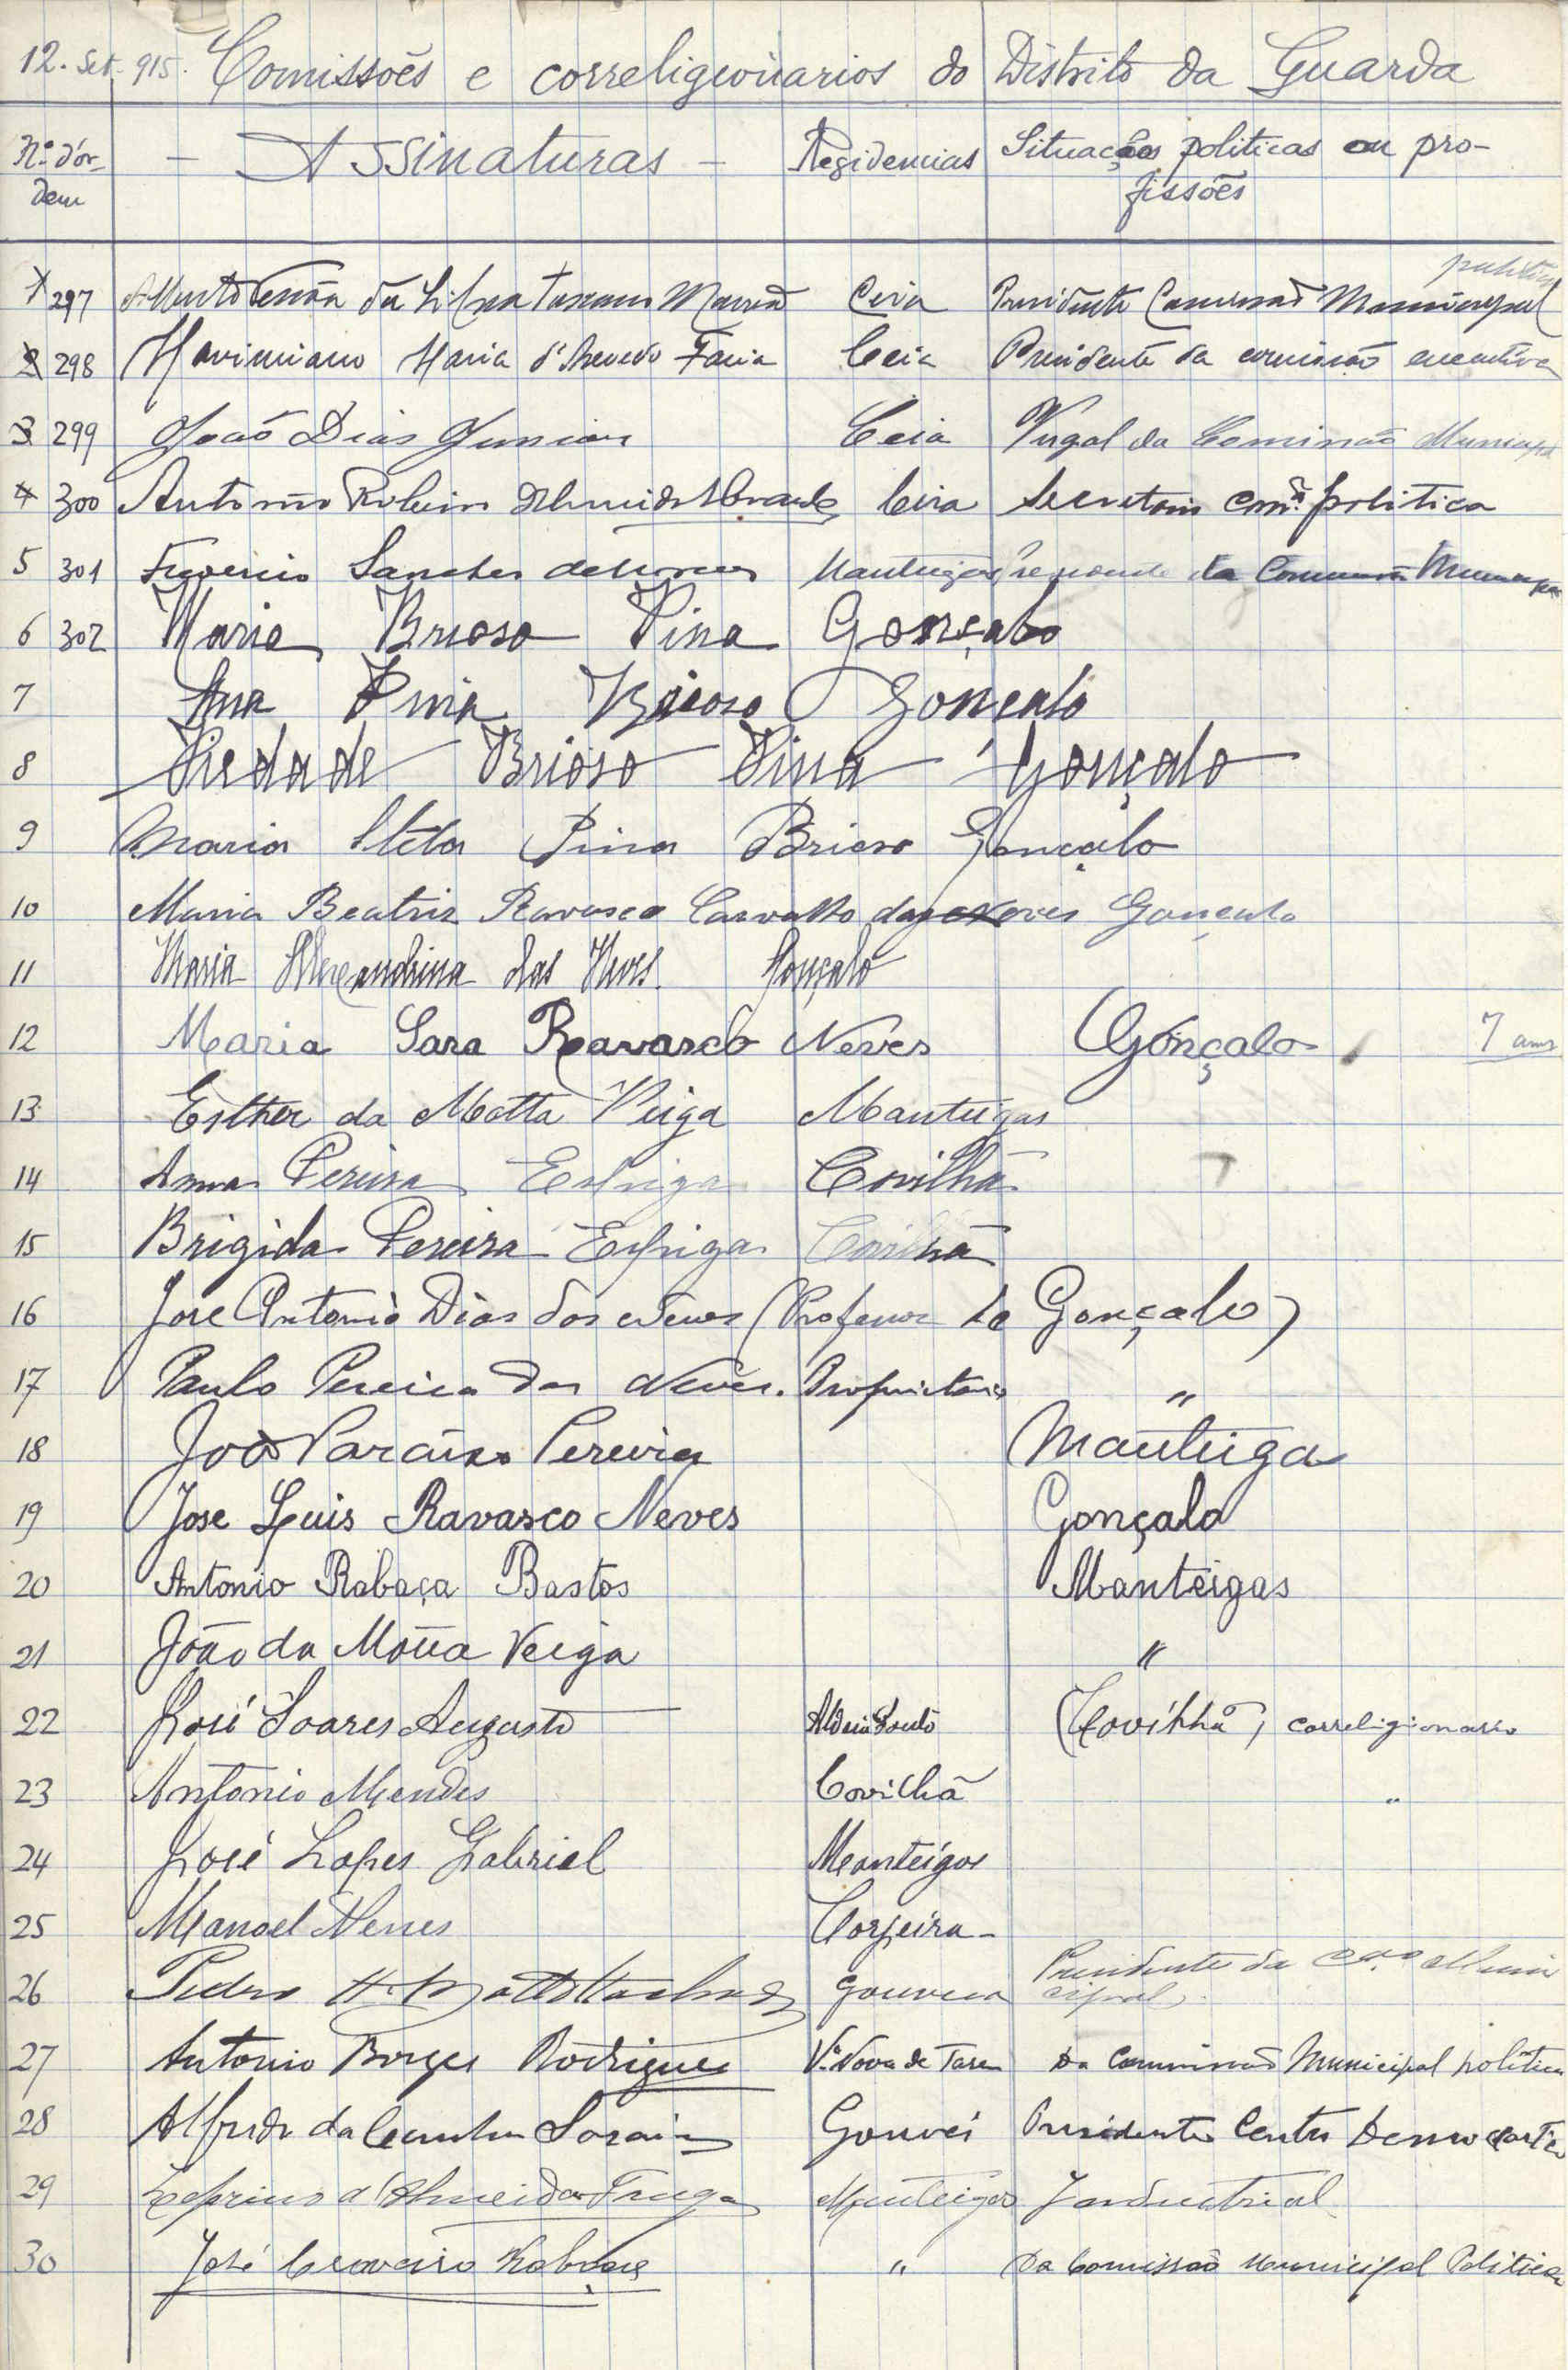 12. Set. 915. Comissões e correligionarios do Distrito da Guarda
Nº d'ór- — Assinaturas — Residencias Situações politicas ou pro-
dem fissões
politica
1 297 Alberto da Silva Ceia Presidente Comissão Municipal
2 298 Maximiano Maria d'Azevedo Faria Ceia Presidente da comissão executiva
3 299 João Dias Junior Ceia Vogal da Comissão Municipal
4 300 Antonio Ceia Secretario Com.ão politica
5 301 Sanches Manteigas da Comissão Municipal
6 302 Maria Brioso Pina Gonçalo
7 Ana Pina Brioso Gonçalo
8 Piedade Brioso Pina Gonçalo
9 Maria Stela Pina Brioso Gonçalo
10 Maria Beatriz Ravasco Carvalho das Neves Gonçalo
11 Maria Alexandrina das Neves. Gonçalo
12 Maria Sara Ravasco Neves Gonçalo 7 anos
13 Esther da Motta Veiga Manteigas
14 Anna Pereira Espiga Covilhã
15 Brigida Pereira Espiga Covilhã
16 José Antonio Dias dos Neves (Professor de Gonçalo)
17 Paulo Pereira das Neves. Proprietario "
18 João Paraizo Pereira Manteiga
19 Jose Luis Ravasco Neves Gonçalo
20 Antonio Rabaça Bastos Manteigas
21 João da Motta Veiga "
22 José Soares Augusto Aldeia Souto (Covilhã) correligionario
23 Antonio Mendes Covilhã "
24 José Lopes Gabriel Manteigas
25 Manoel Nenes
26 Pedro Gouveia Presidente da C.ão Muni
cipal
27 Antonio Borges Rodrigues Vª Nova de Tazem Da Comissão Municipal politica
28 Alfredo da Cunha Gouvei Presidente Centro Democratico
29 d'Almeida Fraga Manteigas Industrial
30 José Craveiro " Da Comissão Municipal Politica